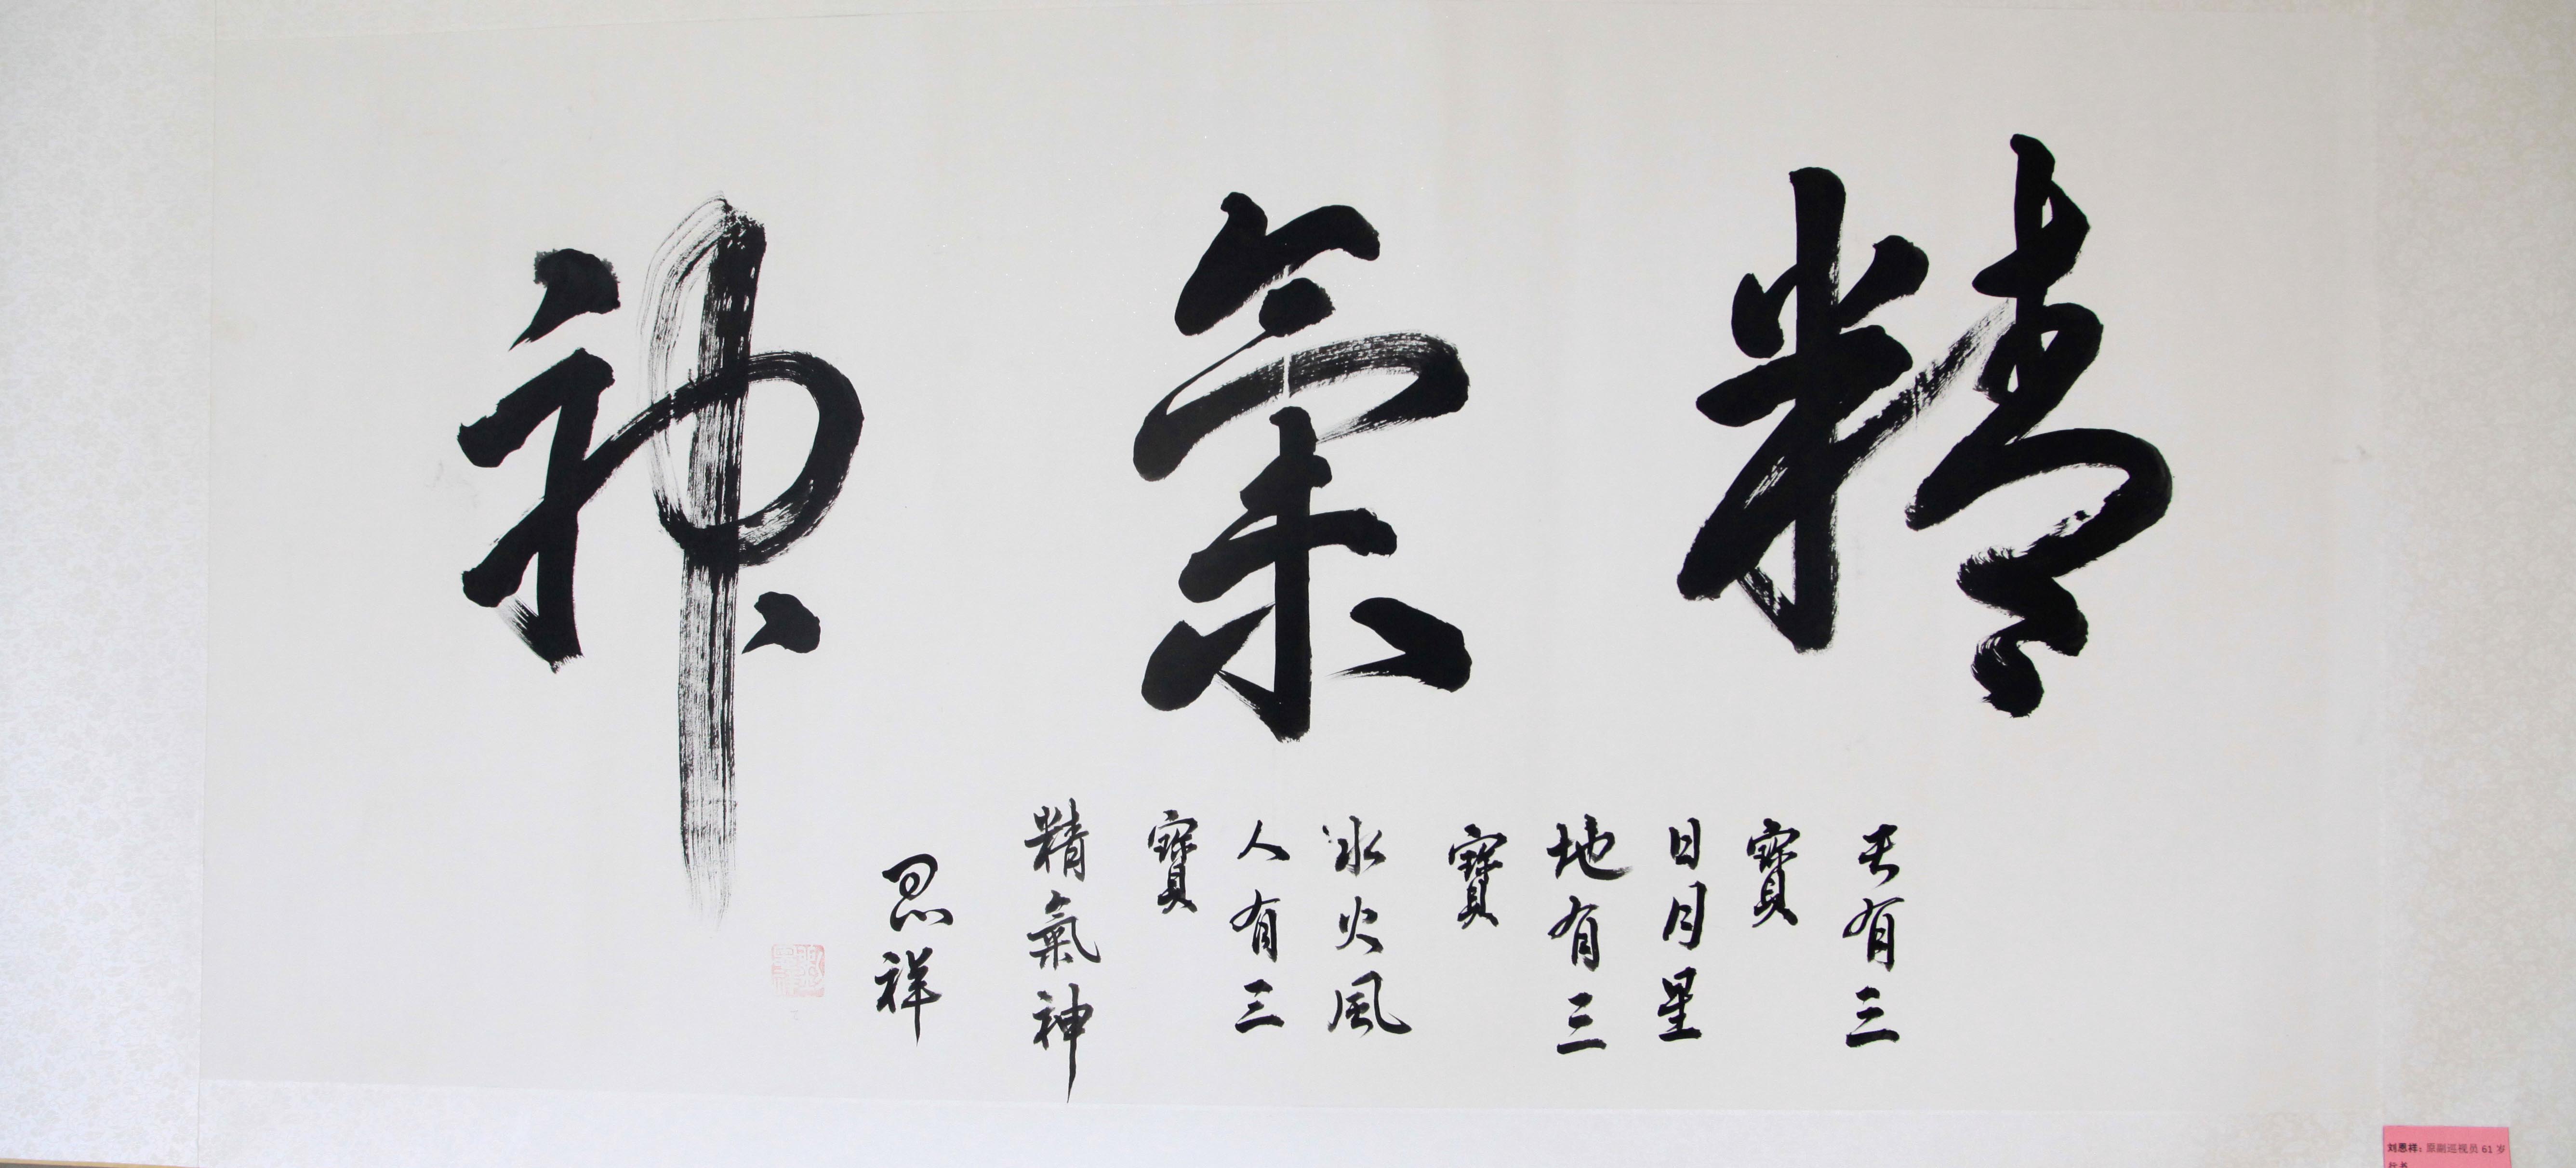 精氣神
天有三
寶
日月星
地有三
寶
水火風
人有三
寶
精氣神
恩祥
刘恩祥：原副巡视员 61 岁